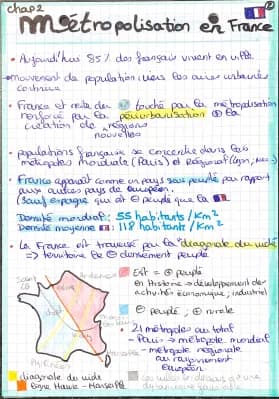 chap 2
Métropolisation en France
2
• Aujourd'hui 85% des français vivent en ville
mouvement de population vers les aires urbaines continue
• France et reste du touché par la métropolisation
renforcé par la périurbanisation la
création de régions
nouvelles
• populations française se concentre dans les
métropoles mondiale (Paris) et Régional (Lyon,
• France apparaît comme un pays peuplé par rapport
aux autres pays de européen.
(sauf espagne qui est ⊖ peuplé que la
Densité mondial : 55 habitants / Km²
Densité moyenne : 118 habitants / Km²
• La France est traversé par la "diagonale du vide"
=> territoire le ⊖ densément peuplé
Est = ⊕ peuplé
en Histoire → développement des
activités économique, industriel
⊖ peuplé, ⊖ rurale
• 21 métropoles au total
- Paris → métropole mondial
- métropole régionale
au rayonnement
Européen
Ardennes
Pyrénées
diagonale du vide
ligne Havre - Marseille